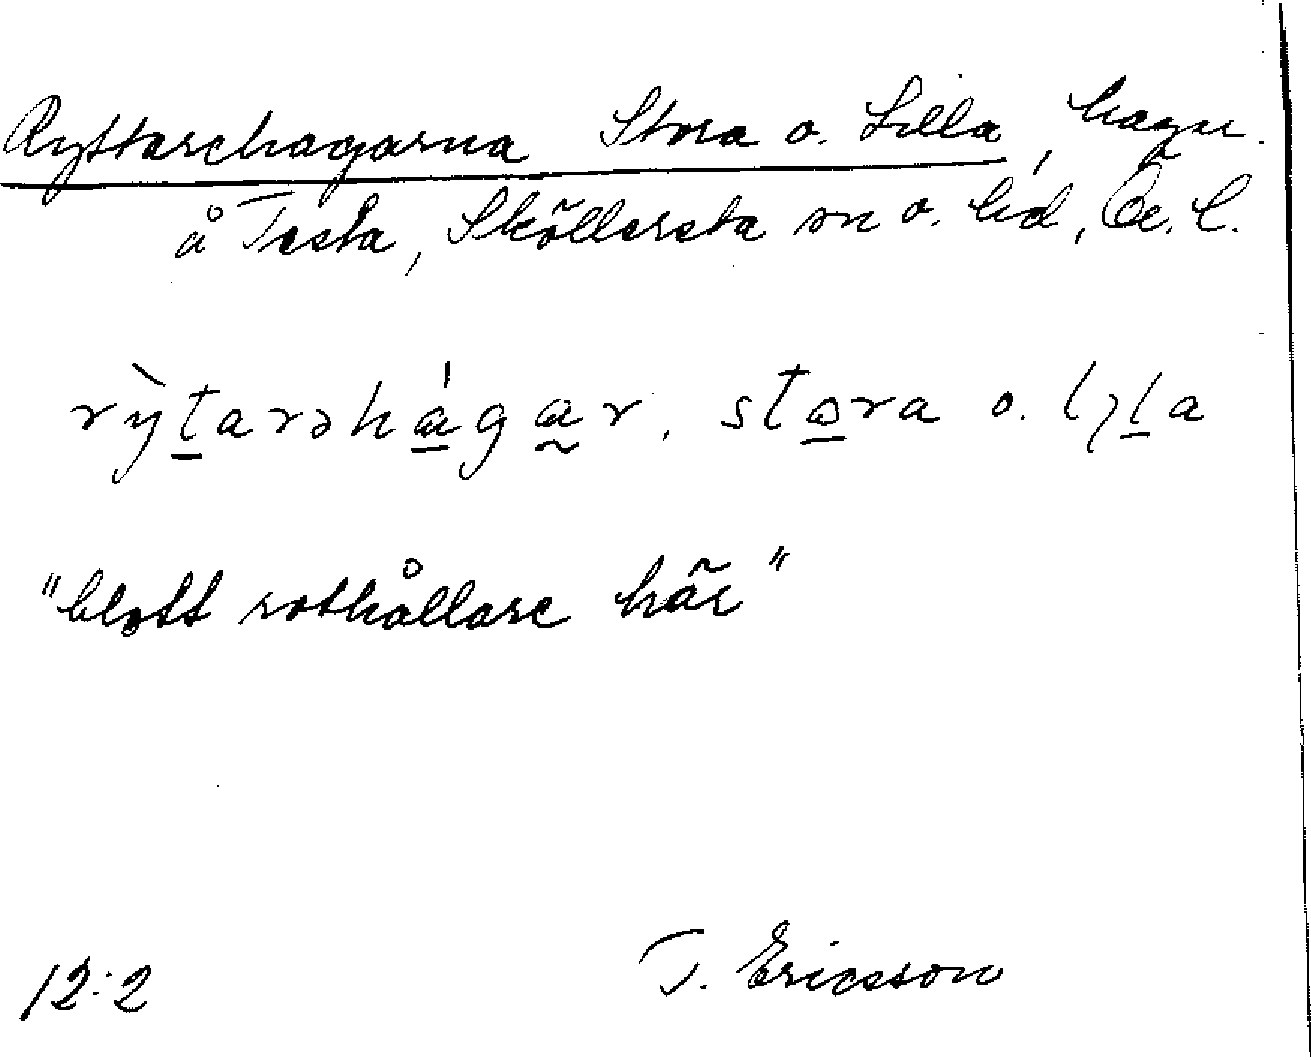 Ryttarehagarna Stora o. Lilla, hagar.
å Testa, Sköllersta sn o. hd, Ör. l.
rỳtarəhágar, stora o. lıla
"blott rothållare här"
12:2 T. Ericsson